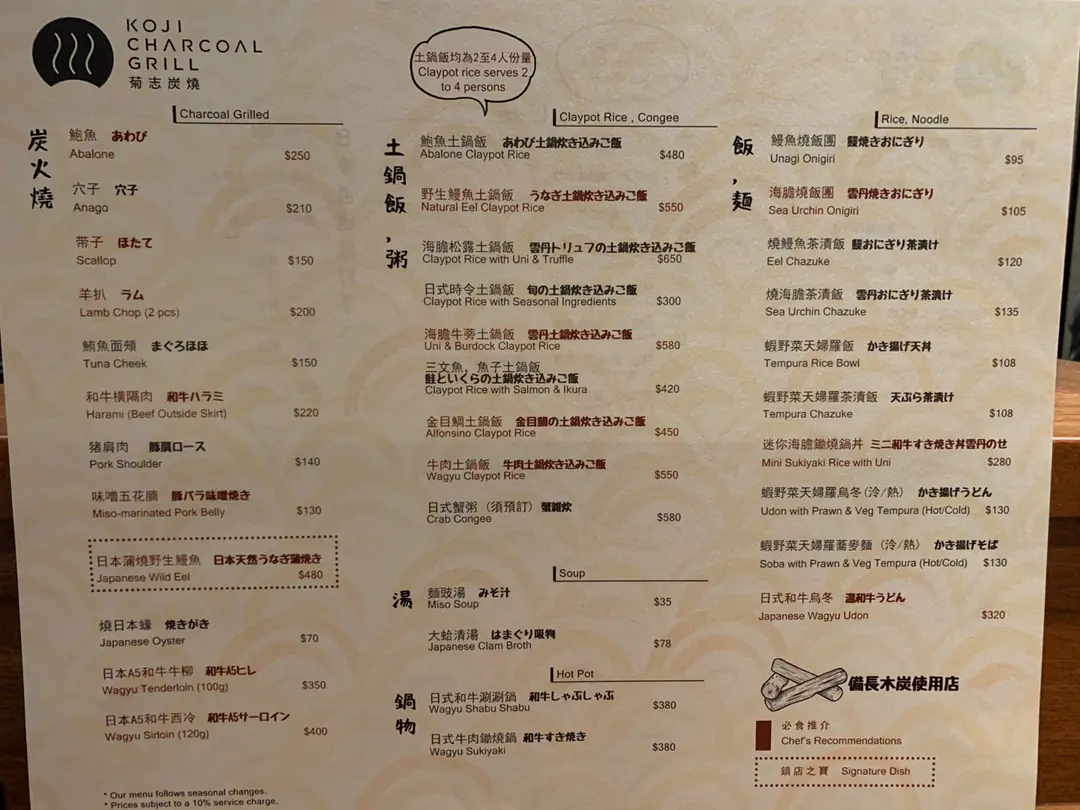 KOJI
CHARCOAL
GRILL
菊志炭燒
炭火燒
Charcoal Grilled
鮑魚 あわび
Abalone $250
穴子 穴子
Anago $210
帶子 ほたて
Scallop $150
羊扒 ラム
Lamb Chop (2 pcs) $200
鮪魚面頰 まぐろほほ
Tuna Cheek $150
和牛橫隔肉 和牛ハラミ
Harami (Beef Outside Skirt) $220
豬肩肉 豚肩ロース
Pork Shoulder $140
味噌五花腩 豚バラ味噌焼き
Miso-marinated Pork Belly $130
日本蒲燒野生鰻魚 日本天然うなぎ蒲焼き
Japanese Wild Eel $480
燒日本蠔 焼きがき
Japanese Oyster $70
日本A5和牛牛柳 和牛A5ヒレ
Wagyu Tenderloin (100g) $350
日本A5和牛西冷 和牛A5サーロイン
Wagyu Sirloin (120g) $400
* Our menu follows seasonal changes.
* Prices subject to a 10% service charge.
土鍋飯均為2至4人份量
Claypot rice serves 2
to 4 persons
土鍋飯,粥
Claypot Rice , Congee
鮑魚土鍋飯 あわび土鍋炊き込みご飯
Abalone Claypot Rice $480
野生鰻魚土鍋飯 うなぎ土鍋炊き込みご飯
Natural Eel Claypot Rice $550
海膽松露土鍋飯 雲丹トリュフの土鍋炊き込みご飯
Claypot Rice with Uni & Truffle $650
日式時令土鍋飯 旬の土鍋炊き込みご飯
Claypot Rice with Seasonal Ingredients $300
海膽牛蒡土鍋飯 雲丹土鍋炊き込みご飯
Uni & Burdock Claypot Rice $580
三文魚，魚子土鍋飯
鮭といくらの土鍋炊き込みご飯
Claypot Rice with Salmon & Ikura $420
金目鯛土鍋飯 金目鯛の土鍋炊き込みご飯
Alfonsino Claypot Rice $450
牛肉土鍋飯 牛肉土鍋炊き込みご飯
Wagyu Claypot Rice $550
日式蟹粥（須預訂）蟹雑炊
Crab Congee $580
湯
Soup
麵豉湯 みそ汁
Miso Soup $35
大蛤清湯 はまぐり吸物
Japanese Clam Broth $78
鍋物
Hot Pot
日式和牛涮涮鍋 和牛しゃぶしゃぶ
Wagyu Shabu Shabu $380
日式牛肉鋤燒鍋 和牛すき焼き
Wagyu Sukiyaki $380
飯,麵
Rice, Noodle
鰻魚燒飯團 鰻焼きおにぎり
Unagi Onigiri $95
海膽燒飯團 雲丹焼きおにぎり
Sea Urchin Onigiri $105
燒鰻魚茶漬飯 鰻おにぎり茶漬け
Eel Chazuke $120
燒海膽茶漬飯 雲丹おにぎり茶漬け
Sea Urchin Chazuke $135
蝦野菜天婦羅飯 かき揚げ天丼
Tempura Rice Bowl $108
蝦野菜天婦羅茶漬飯 天ぷら茶漬け
Tempura Chazuke $108
迷你海膽鋤燒鍋丼 ミニ和牛すき焼き丼雲丹のせ
Mini Sukiyaki Rice with Uni $280
蝦野菜天婦羅烏冬(泠/熱) かき揚げうどん
Udon with Prawn & Veg Tempura (Hot/Cold) $130
蝦野菜天婦羅蕎麥麵 (泠/熱) かき揚げそば
Soba with Prawn & Veg Tempura (Hot/Cold) $130
日式和牛烏冬 温和牛うどん
Japanese Wagyu Udon $320
備長木炭使用店
必食推介
Chef's Recommendations
鎮店之寶 Signature Dish